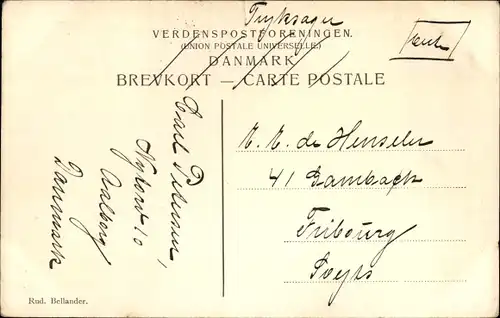 Tryksager
VERDENSPOSTFORENINGEN.
(UNION POSTALE UNIVERSELLE.)
DANMARK
BREVKORT — CARTE POSTALE
Carl Petersen,
Nybo 10
Aalborg
Danmark
de Henseler
41 Gambach
Fribourg
Rud. Bellander.